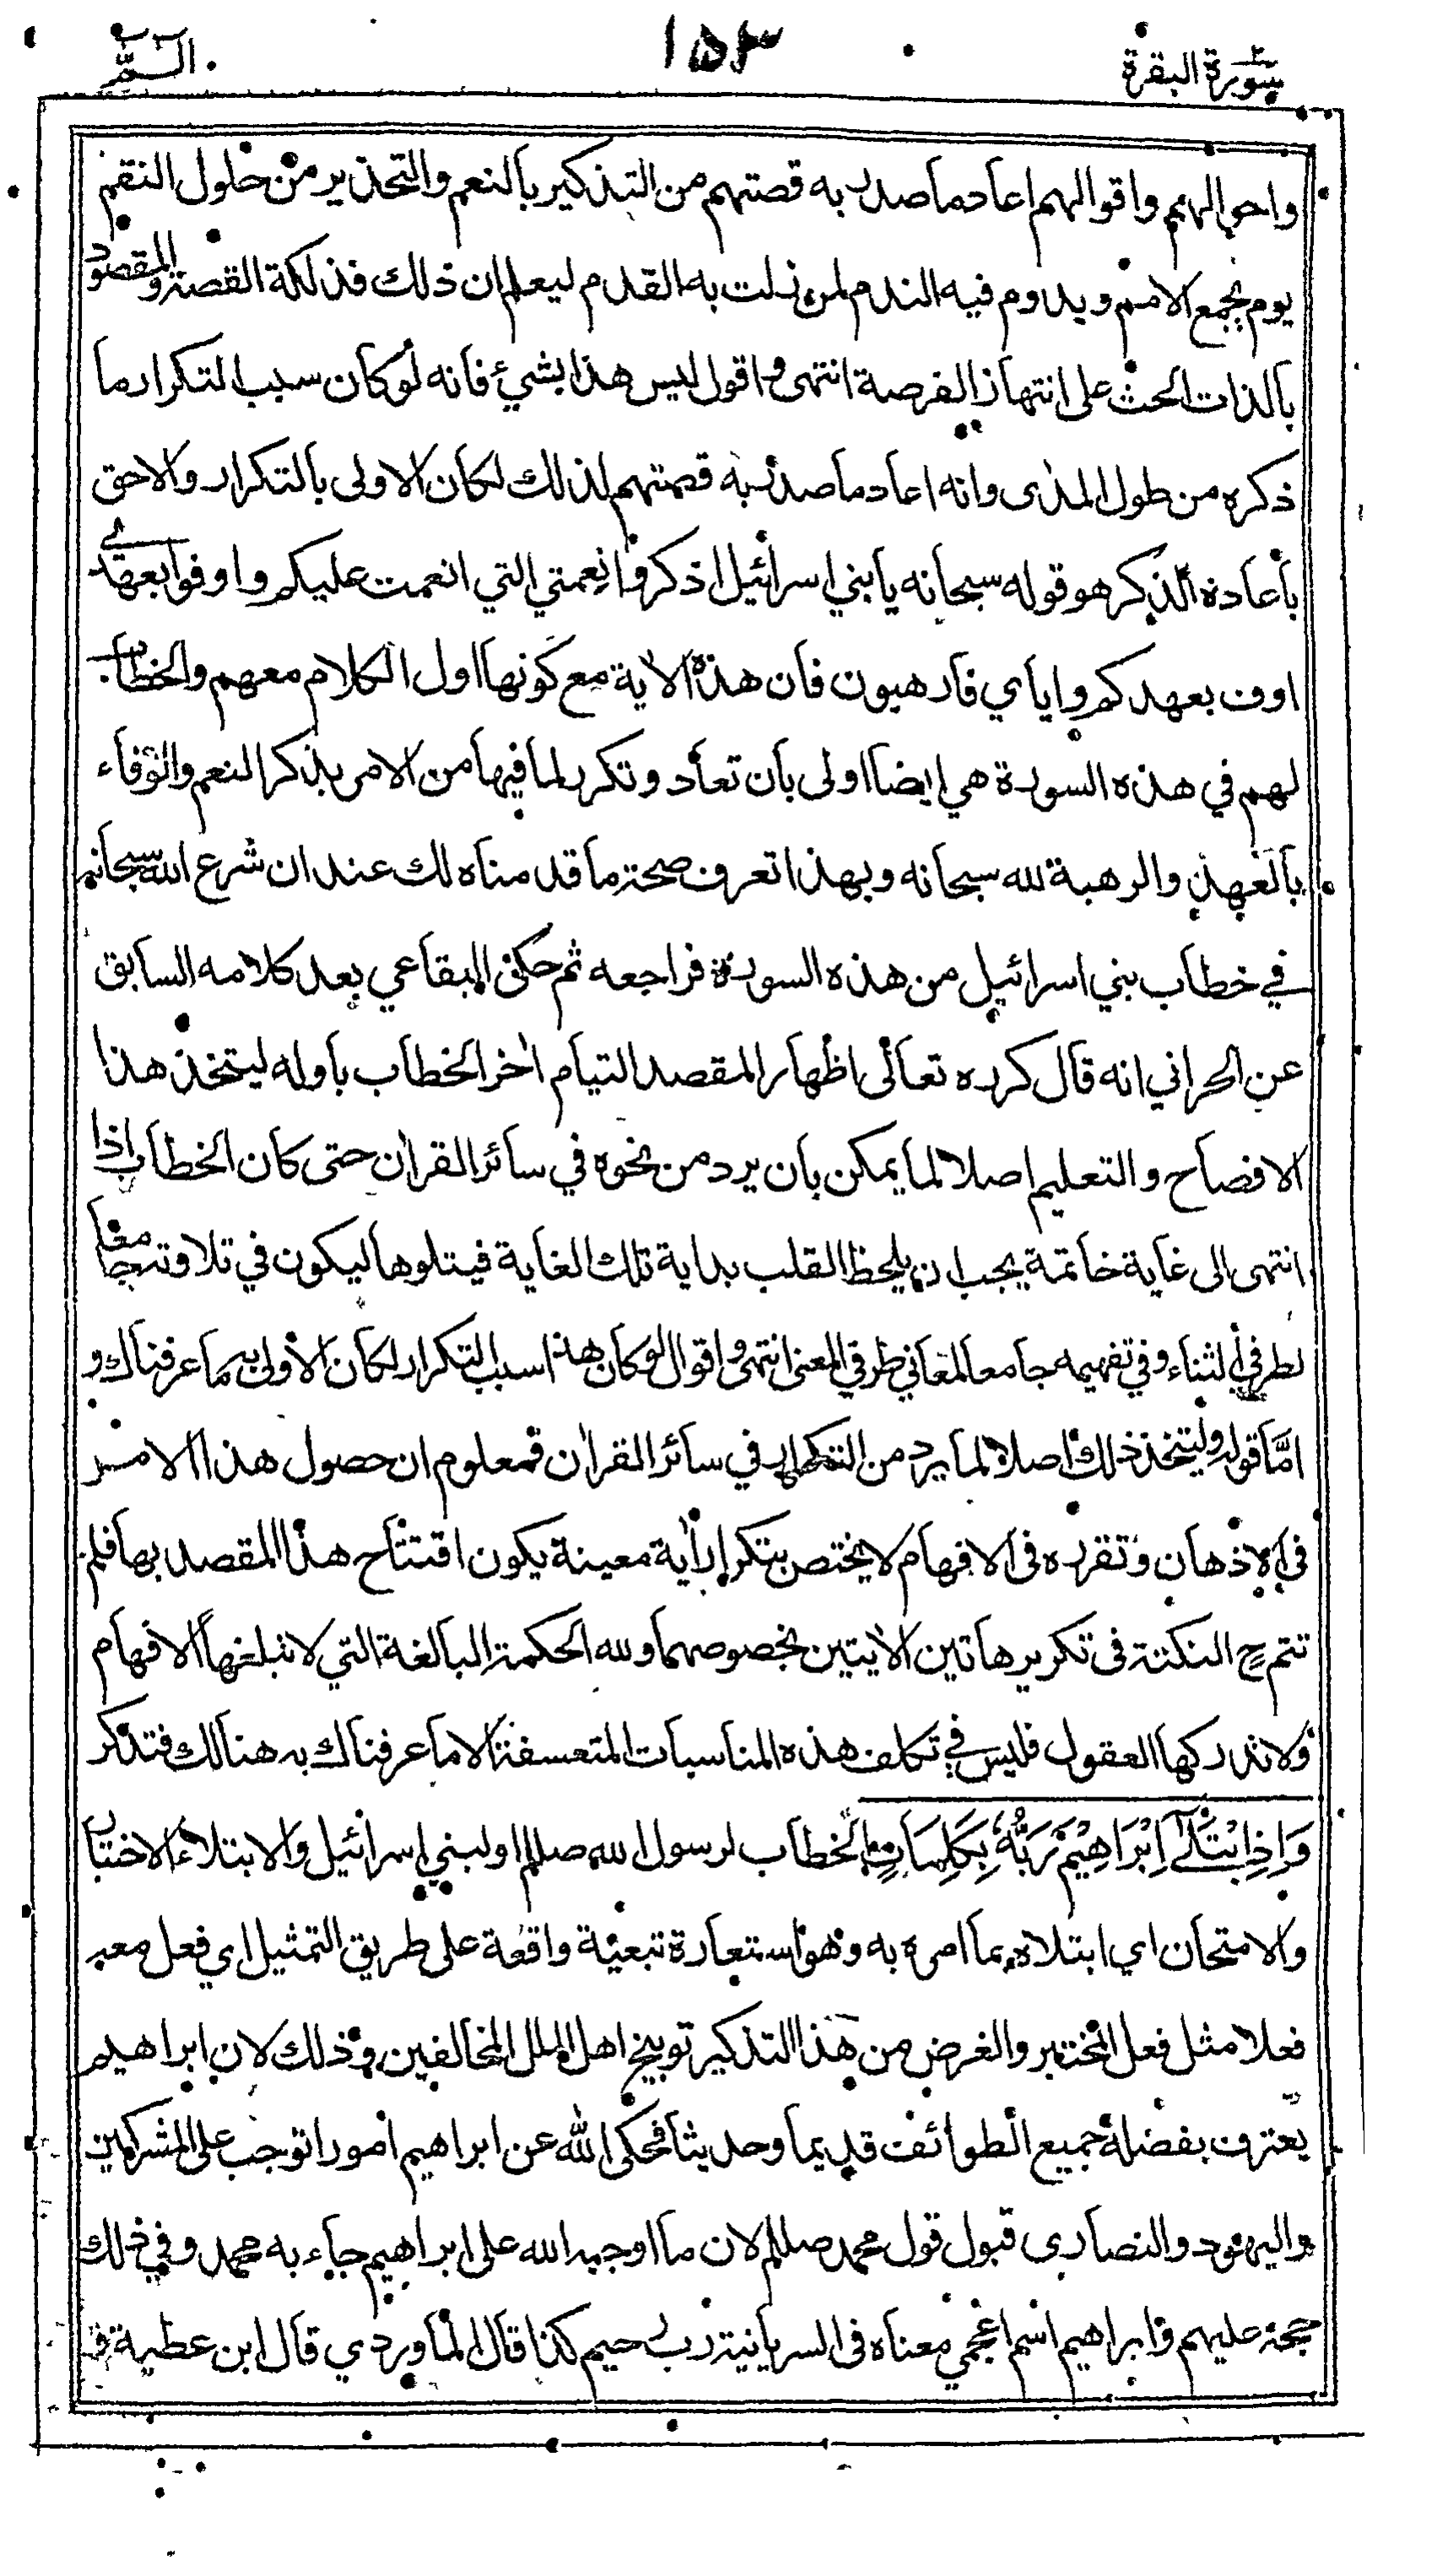 سورة البقرة ١٥٣ الٓمّٓ
واحوالهم واقوالهم اعاد ما صدر به قصتهم من التذكير بالنعم والتحذير من حلول النقم
يوم يجمع الامم ويدوم فيه الندم لمن زلت به القدم ليعلم ان ذلك فذلكة القصة والمقصود
بالذات الحث على انتهاز الفرصة انتهى واقول ليس هذا بشيئ فانه لو كان سبب التكرار ما
ذكره من طول المدى وانه اعاد ما صدر به قصتهم لذلك لكان الاولى بالتكرار والاحق
باعادة الذكر هو قوله سبحانه يا بني اسرائيل اذكروا نعمتي التي انعمت عليكم واوفوا بعهدي
اوف بعهدكم واياي فارهبون فان هذه الاية مع كونها اول الكلام معهم والخطاب
لهم في هذه السورة هي ايضا اولى بان تعاد وتكرر لما فيها من الامر بذكر النعم والوفاء
بالعهد والرهبة لله سبحانه وبهذا تعرف صحة ما قدمناه لك عند ان شرع الله سبحانه
في خطاب بني اسرائيل من هذه السورة فراجعه ثم حكى البقاعي بعد كلامه السابق
عن الحراني انه قال كرره تعالى اظهار المقصد التيام اخر الخطاب باوله ليتخذ هذا
الافصاح والتعليم اصلا لما يمكن بان يرد من نحوه في سائر القران حتى كان الخطاب اذا
انتهى الى غاية خاتمة يجب ان يلحظ القلب بداية تلك الغاية فيتلوها ليكون في تلاوته جامعا
لطرفي الثناء وفي تفهيمه جامعا لمعاني طرفي المعنى انتهى واقول لو كان هذا سبب التكرار لكان الاولى به ما عرفناك و
امّا قوله وليتخذ ذلك اصلا لما يرد من التكرار في سائر القران فمعلوم ان حصول هذا الامر
في الاذهان وتقرره في الافهام لا يختص بتكرار اية معينة يكون افتتاح هذا المقصد بها فلم
تتم ح النكتة في تكرير هاتين الايتين بخصوصهما ولله الحكمة البالغة التي لا تبلغها الافهام
ولا تدركها العقول فليس في تكلف هذه المناسبات المتعسفة الا ما عرفناك به هنالك فتذكر
وَاِذِ ابْتَلٰٓى اِبْرَاهِيْمَ رَبُّهٗ بِكَلِمَاتٍ الخطاب لرسول الله صللم او لبني إسرائيل والابتلاء الاختبار
والامتحان اي ابتلاه بما امره به وهو استعارة تبعية واقعة على طريق التمثيل اي فعل معه
فعلا مثل فعل المختبر والغرض من هذا التذكير توبيخ اهل الملل المخالفين وذلك لان ابراهيم
يعترف بفضله جميع الطوائف قديما وحديثا فحكى الله عن ابراهيم امورا توجب على المشركين
واليهود والنصارى قبول قول محمد صللم لان ما اوجبه الله على ابراهيم جاء به محمد وفي ذلك
حجة عليهم وابراهيم اسم اعجمي معناه في السريانية رب رحيم كذا قال الماوردي قال ابن عطية و